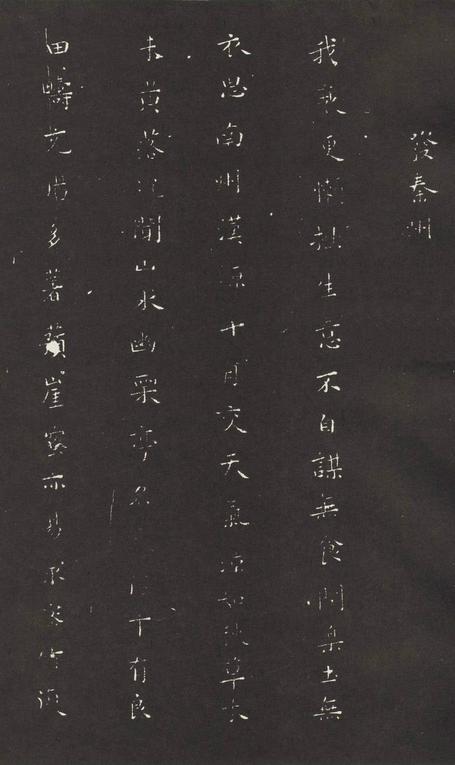 發秦州
我衰更懶拙生意不自謀無食問樂土無
衣思南州漢源十月交天氣涼如秋草木
未黃落況聞山水幽栗亭名下有良
田疇充腸多薯蕷崖蜜亦易求密竹復